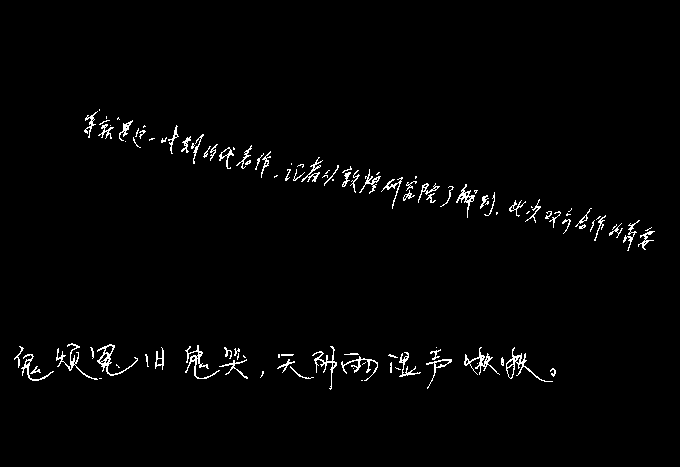 等就是这一计划的代表作。记者从敦煌研究院了解到，此次双方合作的首要
鬼烦冤旧鬼哭，天阴雨湿声啾啾。